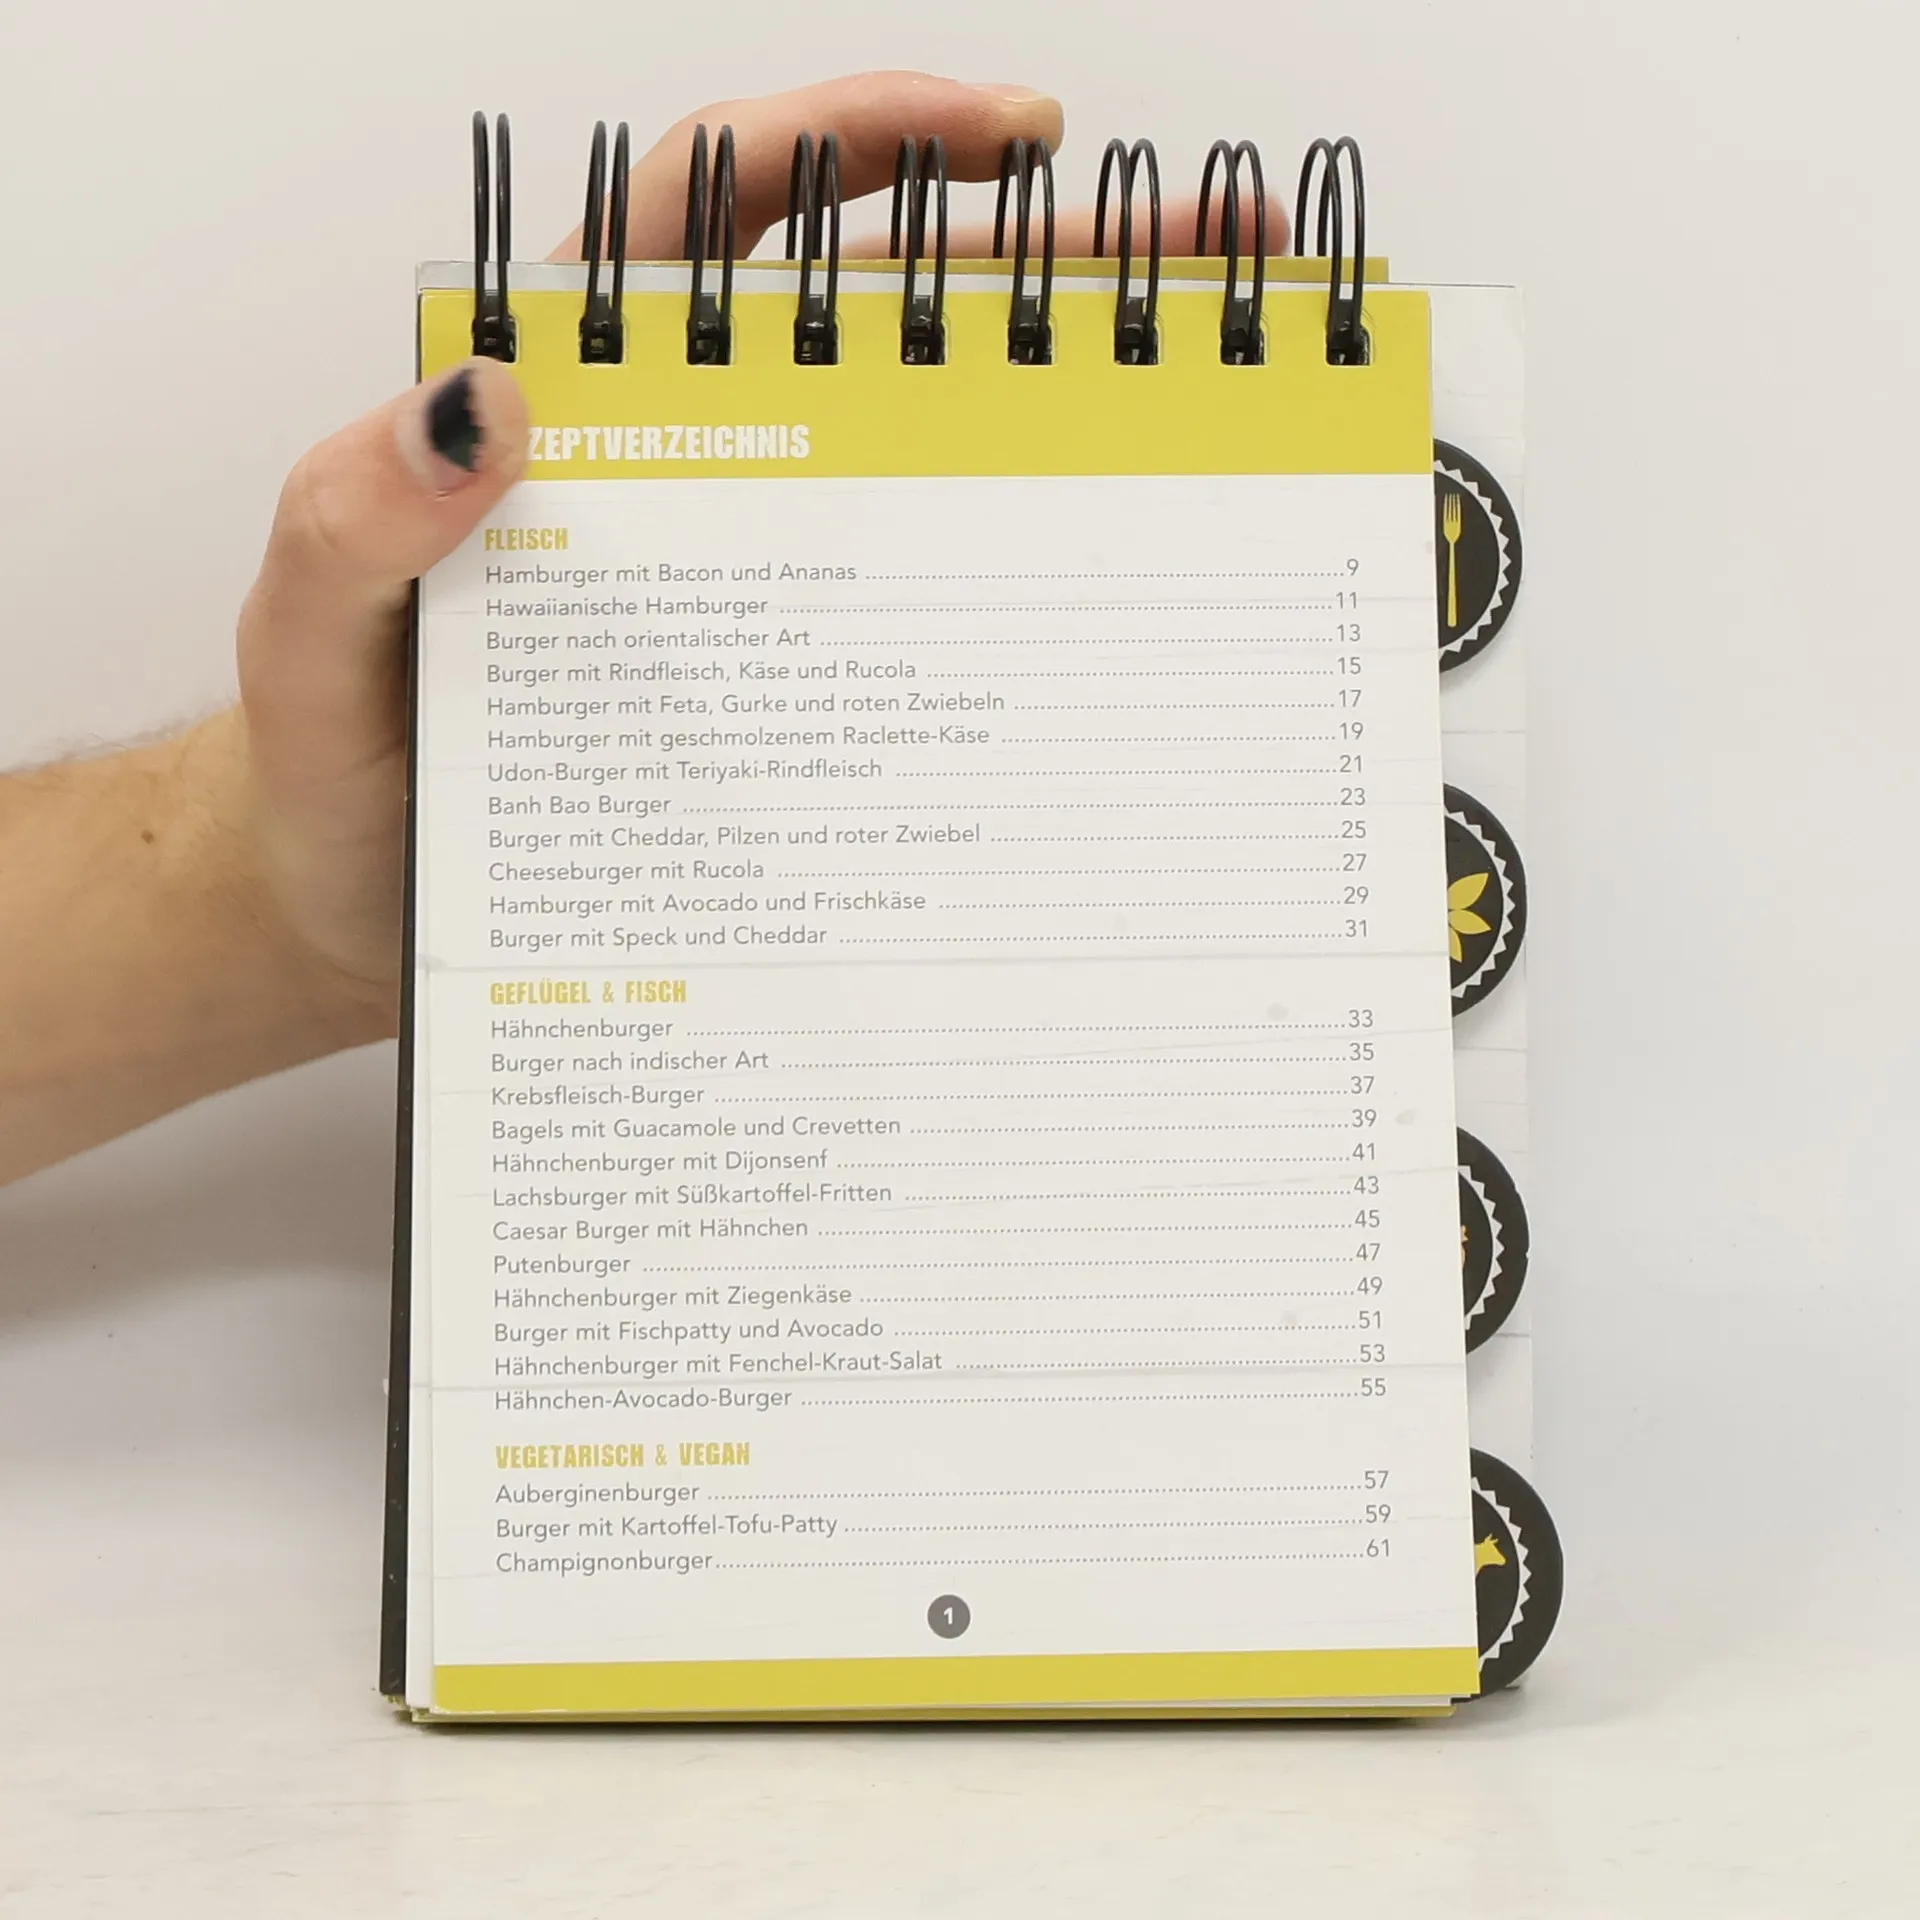 ZEPTVERZEICHNIS
FLEISCH
Hamburger mit Bacon und Ananas 9
Hawaiianische Hamburger 11
Burger nach orientalischer Art 13
Burger mit Rindfleisch, Käse und Rucola 15
Hamburger mit Feta, Gurke und roten Zwiebeln 17
Hamburger mit geschmolzenem Raclette-Käse 19
Udon-Burger mit Teriyaki-Rindfleisch 21
Banh Bao Burger 23
Burger mit Cheddar, Pilzen und roter Zwiebel 25
Cheeseburger mit Rucola 27
Hamburger mit Avocado und Frischkäse 29
Burger mit Speck und Cheddar 31
GEFLÜGEL & FISCH
Hähnchenburger 33
Burger nach indischer Art 35
Krebsfleisch-Burger 37
Bagels mit Guacamole und Crevetten 39
Hähnchenburger mit Dijonsenf 41
Lachsburger mit Süßkartoffel-Fritten 43
Caesar Burger mit Hähnchen 45
Putenburger 47
Hähnchenburger mit Ziegenkäse 49
Burger mit Fischpatty und Avocado 51
Hähnchenburger mit Fenchel-Kraut-Salat 53
Hähnchen-Avocado-Burger 55
VEGETARISCH & VEGAN
Auberginenburger 57
Burger mit Kartoffel-Tofu-Patty 59
Champignonburger 61
1